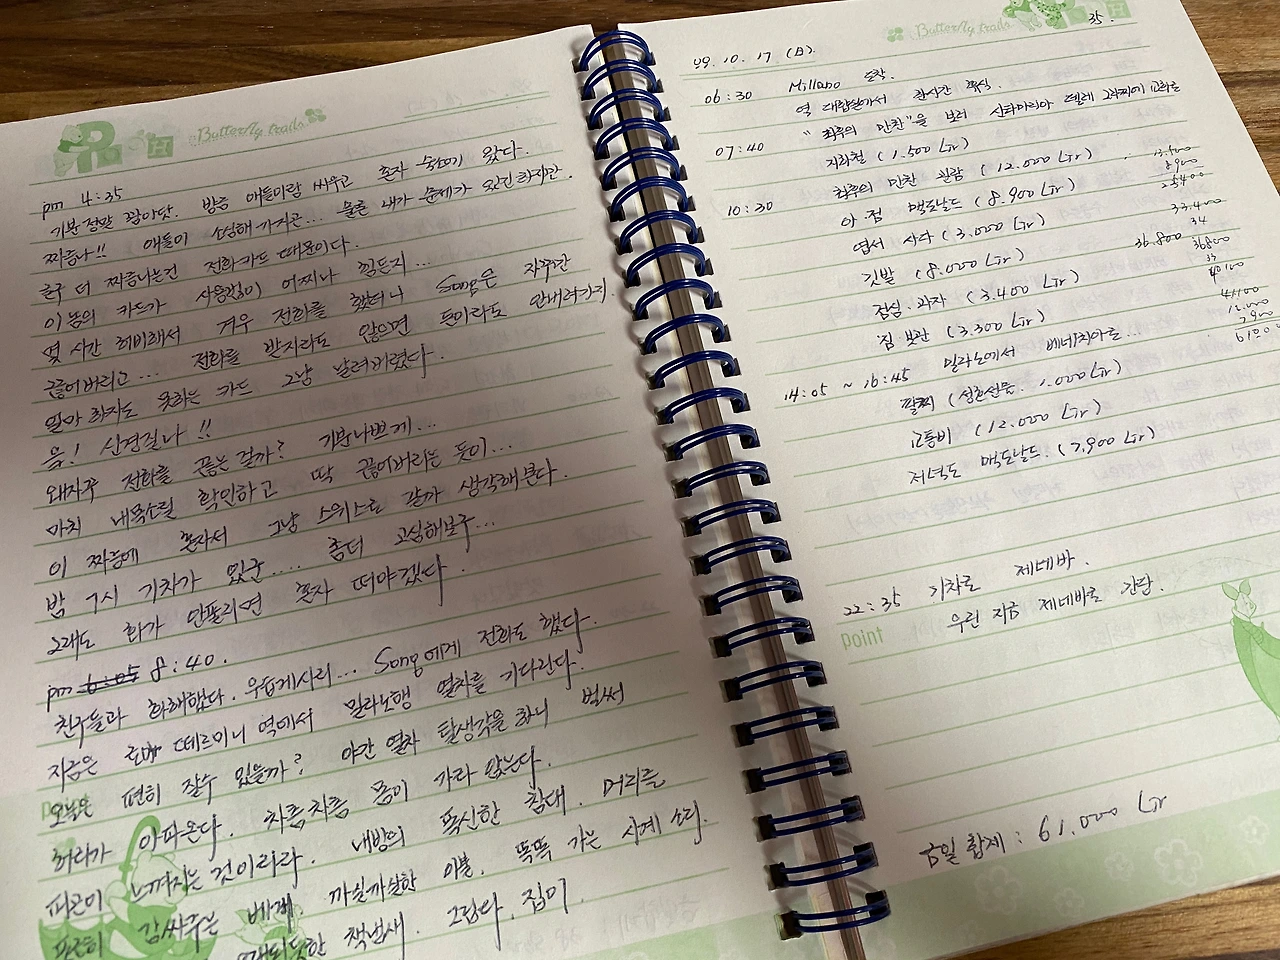 Butterfly trails
pm 4:35
기분 정말 꽝이닷. 방금 애들이랑 싸우고 혼자 숙소에 왔다.
짜증나!! 애들이 소심해 가지곤... 물론 내가 문제가 있긴 하지만.
훨 더 짜증나는건 전화카드 때문이다.
이놈의 카드가 사용법이 어찌나 힘든지...
몇 시간 헤매서 겨우 전화를 했더니 Song은 자꾸만
끊어버리고... 전화를 받지라도 않으면 돈이라도 안내려가지.
알아 듣지도 못하는 카드 그냥 날려버렸다.
음! 신경질나!!
왜 자꾸 전화를 끊는 걸까? 기분나쁘게...
마치 내목소릴 확인하고 딱 끊어버리는 듯이...
이 짜증에 혼자서 그냥 스위스로 갈까 생각해본다.
밤 9시 기차가 있군.... 좀더 고심해보구...
그래도 화가 안풀리면 혼자 떠야겠다.
pm 8:40.
친구들과 화해했다. 우습게시리... Song에게 전화도 했다.
지금은 로마 떼르미니 역에서 밀라노행 열차를 기다린다.
오늘은 편히 잘수 있을까? 야간 열차 탈생각을 하니 벌써
허리가 아파온다. 차츰차츰 몸이 가라 앉는다.
피곤이 느껴지는 것이리라. 내방의 푹신한 침대. 머리를
포근히 감싸주는 베개. 까실까실한 이불. 똑똑 가는 시계 소리.
책냄새. 그립다. 집이.
Butterfly trails
35.
99. 10. 17 (日).
06:30 Millano 도착.
역 대합실에서 한시간 휴식.
07:40 "최후의 만찬"을 보러 산타마리아 델레 그라찌에 교회로
지하철 (1.500 Lir)
최후의 만찬 관람 (12.000 Lir)
10:30 아.점 맥도날드 (8.900 Lir)
엽서 사다 (3.000 Lir)
깃발 (8.000 Lir)
점심. 과자 (3.400 Lir)
짐 보관 (3.300 Lir)
14:05 ~ 16:45 밀라노에서 베네치아로...
팔찌 (선물. 1.000 Lir)
교통비 (12.000 Lir)
저녁도 맥도날드. (7,900 Lir)
22:35 기차로 제네바.
우린 지금 제네바로 간닷.
point
금일 합계 : 61.000 Lir